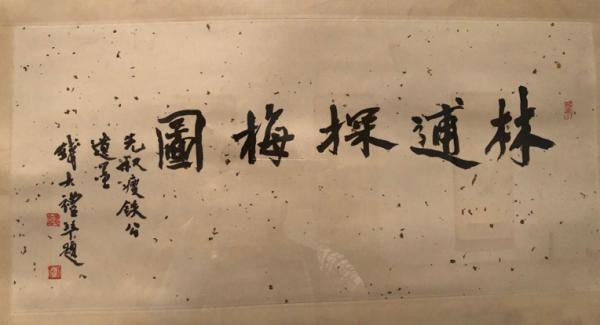 林逋探梅圖
先叔瘦鉄公
遺
錢大禮拜題